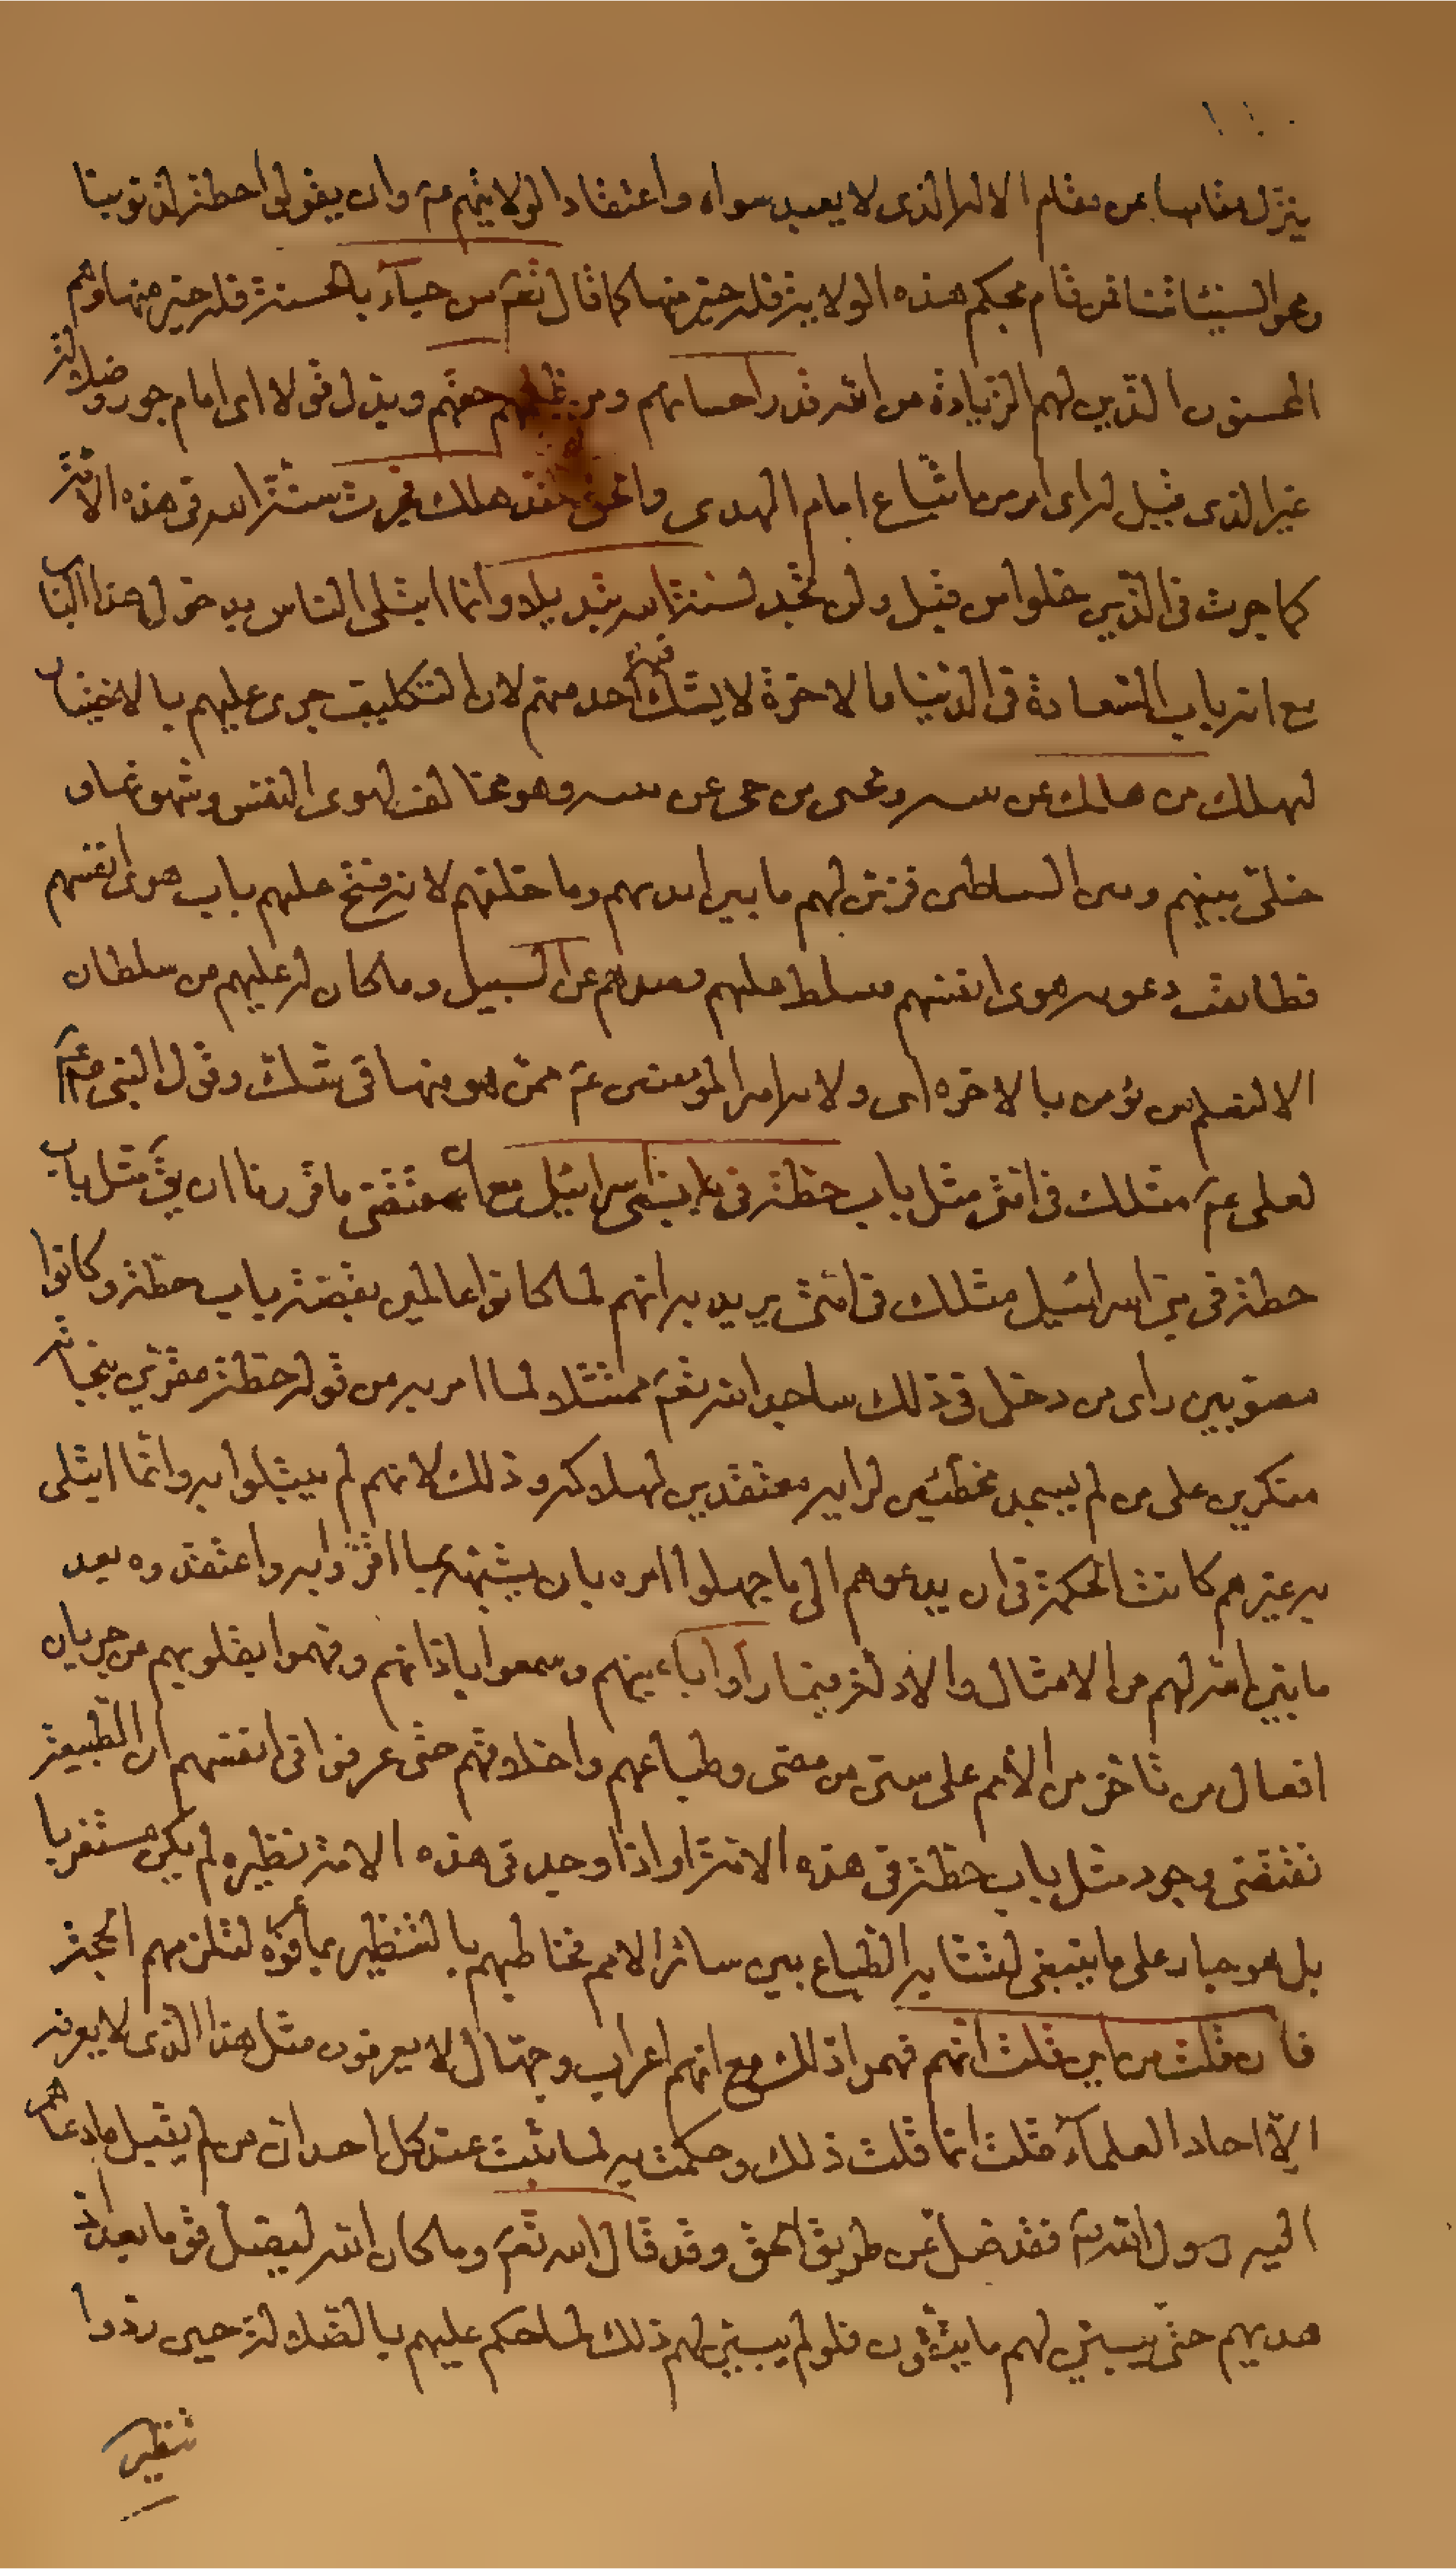 ينزل مقامها عن مقام الاله الذى لا يعبد سواه واعتقادا لولايتهم عم وان يقولوا حطة لذنوبنا
ومحوا لسيئاتنا فمن قام بحكم هذه الولاية فله خير منها كما قال تعم من جاء بالحسنة فله خير منها وهم
المحسنون الذين لهم الزيادة من الله قدر احسانهم ومن حقهم وبدل قولا اى امام جور وضلالة
غير الذى قيل له اى امر من اتباع امام الهدى والحق فقد هلك فجرت سنة الله فى هذه الامة
كما جرت فى الذين خلوا من قبل ولن تجد لسنة الله تبديلا وانما ابتلى الناس بدخول هذا الباب
مع انه باب السعادة فى الدنيا والاخرة لا يشك فيه احد منهم لان التكليف جرى عليهم بالاختيار
ليهلك من هلك عن بينه ويحيى من حى عن بينه وهو مخالف لهوى النفس وشهوتها و
خلى بينهم وبين الشيطان فزين لهم ما بين ايديهم وما خلفهم لانه فتح عليهم باب هوى انفسهم
فطابقت دعوته هوى انفسهم فسلط عليهم فصدهم عن السبيل وما كان له عليهم من سلطان
الا لنعلم من يؤمن بالاخره اى ولاية امير المؤمنين عم ممن هو منها فى شك وقول النبى صم
لعلى عم مثلك فى امتى مثل باب حطة فى بنى اسرائيل مع ان مقتضى ما قررنا ان يق مثل باب
حطة فى بنى اسرائيل مثلك فى امتى يريد به انهم لما كانوا عالمين بقصة باب حطة وكانوا
مصوبين راى من دخل فى ذلك ساجدا لله تعم ممتثلا لما امر به من قوله حطة مقرين بنجاته
منكرين على من لم يسجد مخطئين لرايه معتقدين لهلاكه وذلك لانهم لم يبتلوا به وانما ابتلى
به غيرهم كانت الحكمة فى ان يدعوهم الى ما جهلوا امره بان يشبهه بما اقروا به واعتقدوه بعد
ما بين الله لهم من الامثال والادلة فيما راوا باعينهم وسمعوا باذانهم وفهموا بقلوبهم من جريان
افعال من تاخر من الامم على سنن من مضى وطباعهم واخلاقهم حتى عرفوا فى انفسهم ان الطبيعة
تقتضى وجود مثل باب حطة فى هذه الامة واذا وجد فى هذه الامة نظيره لم يكن مستغربا
بل هو جار على ما ينبغى لتشابه الطباع بين سائر الامم فخاطبهم بالتنظير بما لتلزمهم الحجة
فان قلت من اين قلت انهم فهموا ذلك مع انهم اعراب وجهال لا يعرفون مثل هذا الذى لا يعرفه
الا احاد العلماء قلت انما قلت ذلك وحكمت به لما ثبت عند كل احد ان من لم يقبل ما دعاهم
اليه رسول الله ص فقد ضل عن طريق الحق وقد قال الله تعم وما كان الله ليضل قوما بعد اذ
هديهم حتى يبين لهم ما يتقون فلو لم يبين لهم ذلك لما حكم عليهم بالضلالة حين ردوا
تنظير